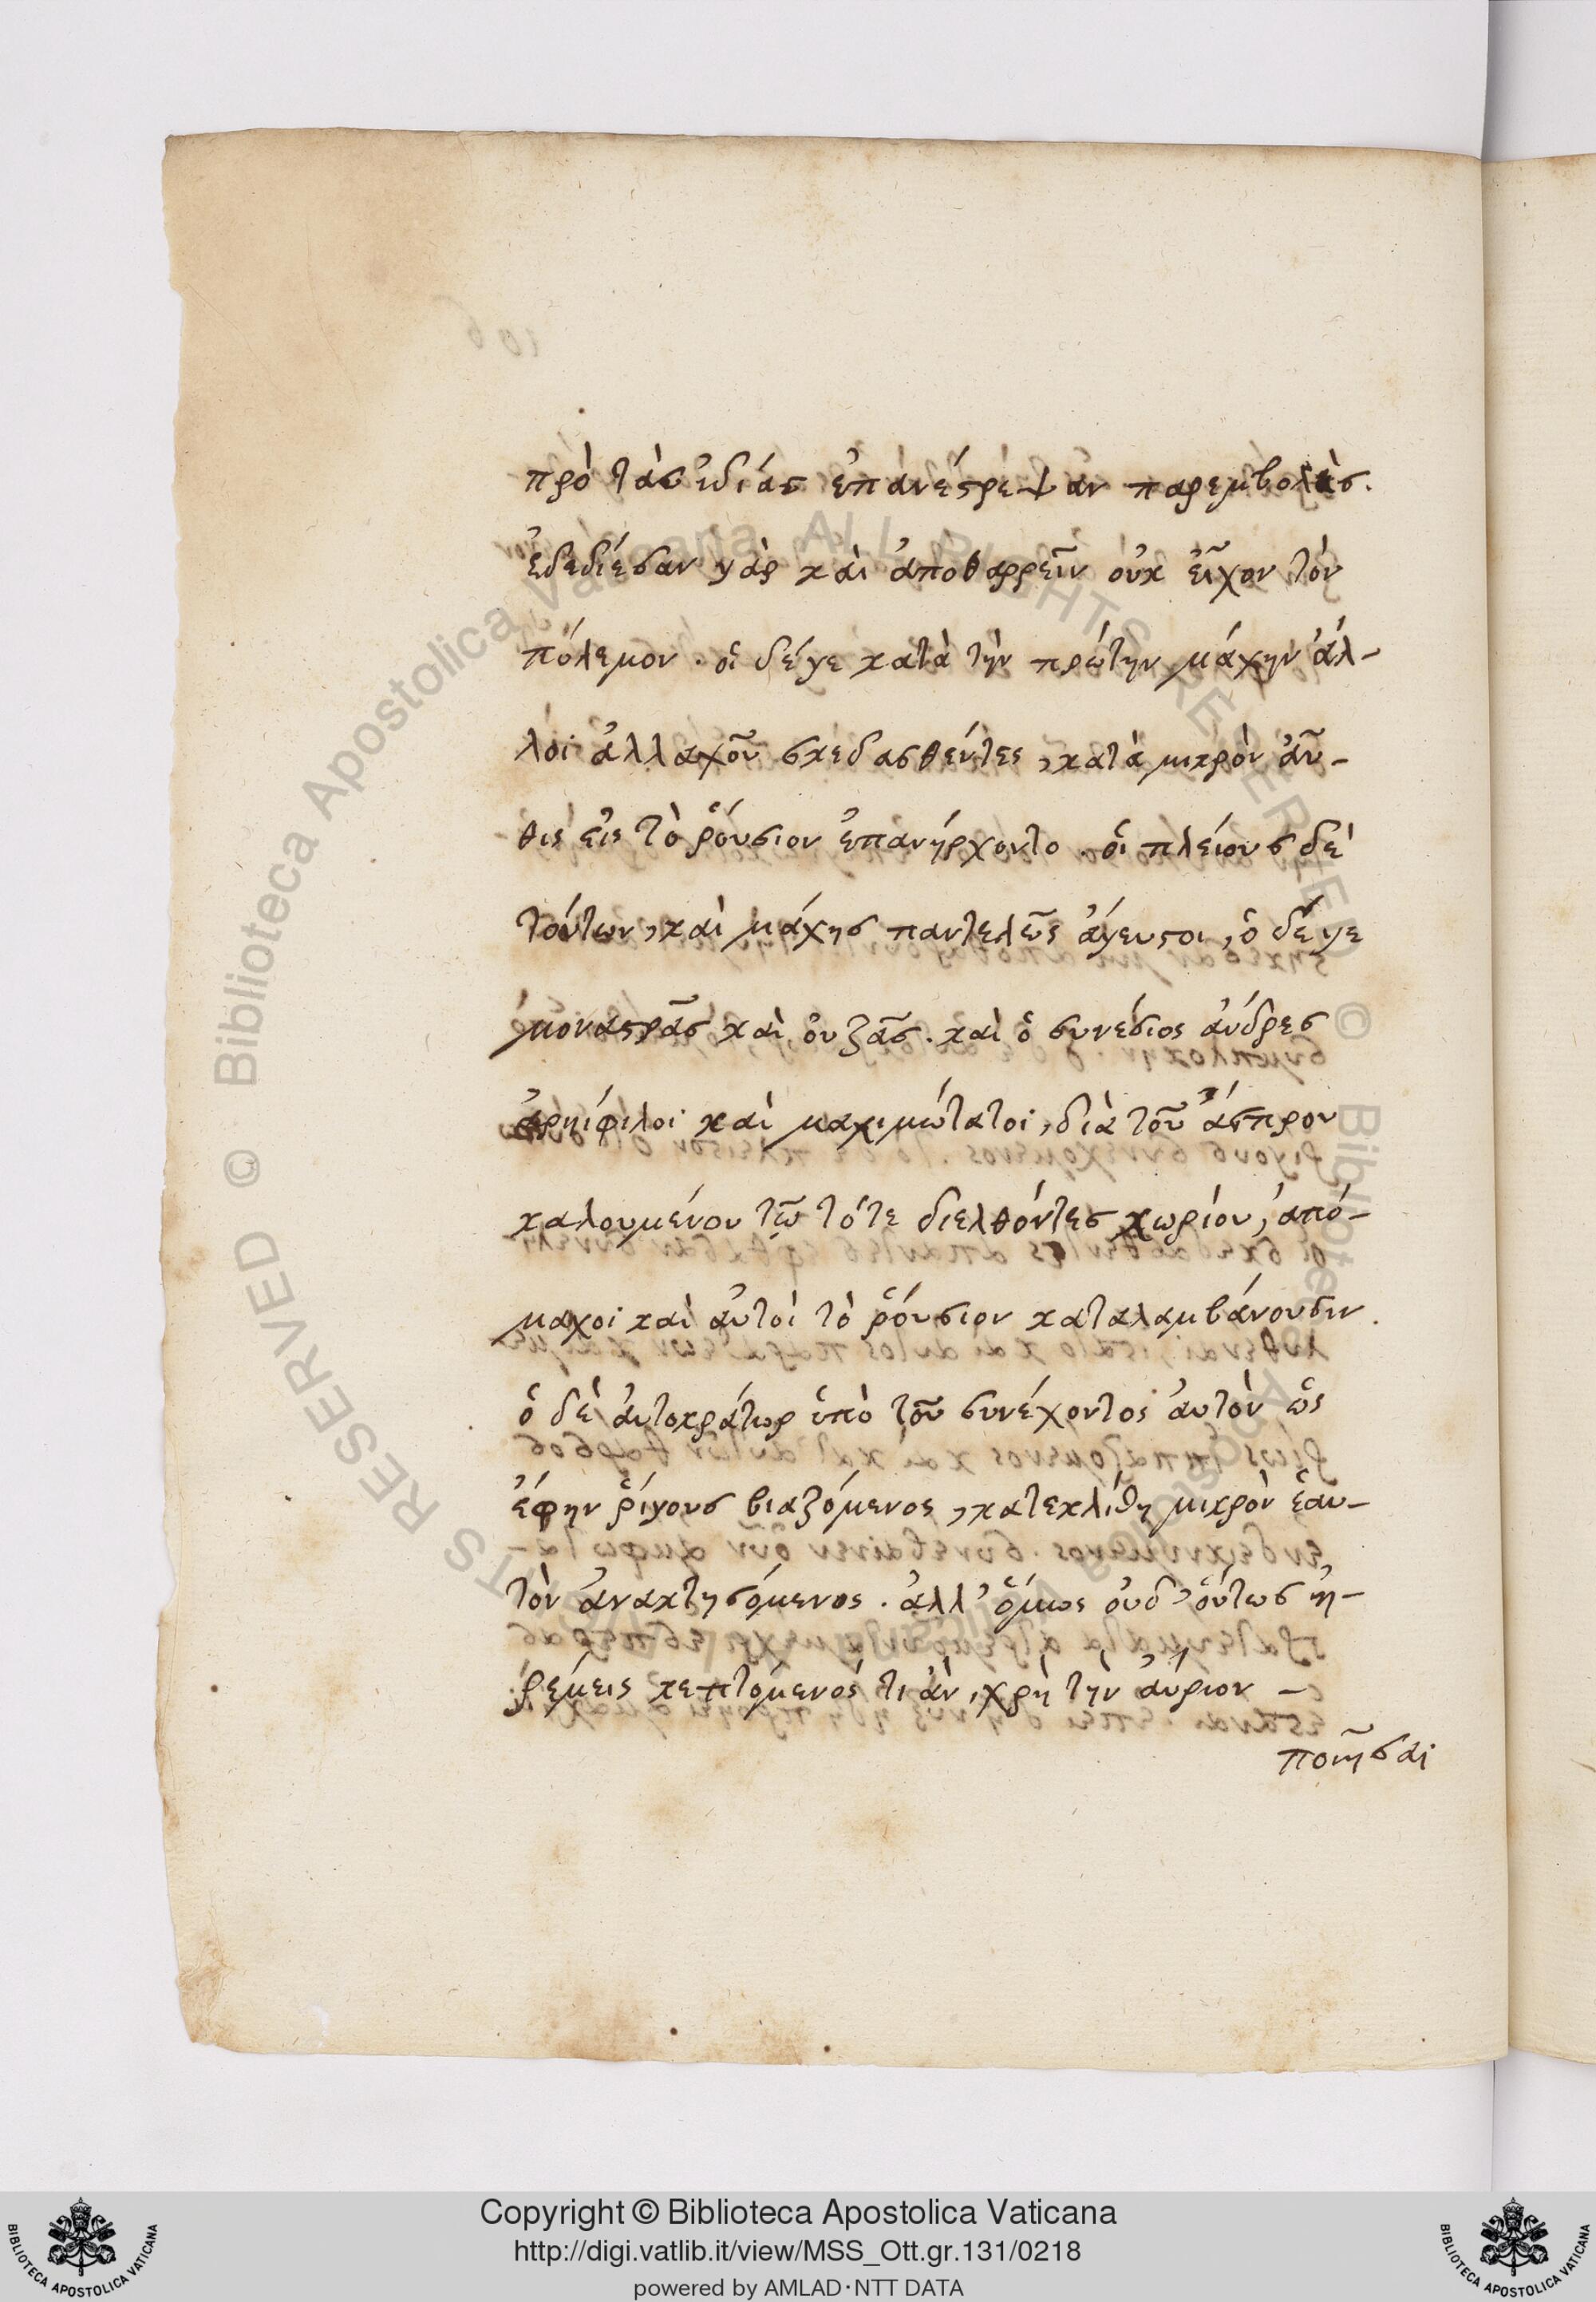 πρὸ τὰσ ἰδίασ ἐπἀνέστρεψαν παρεμβολὰσ.
ἐδεδίεσαν γὰρ καὶ ἀποθαρρεῖν οὐκ εἶχον τὸν
πόλεμον. οἱ δέγε κατὰ τὴν πρώτην μάχην ἄλ-
λοι ἀλλαχοῦ σκεδασθέντες, κατὰ μικρὸν αὖ-
θις εἰς τὸ ῥούσιον ἐπανήρχοντο. οἱ πλείουσ δὲ
τούτων, καὶ μάχησ παντελῶς ἄγευστοι, ὁ δέγε
μοναστρᾶσ καὶ, οὐζᾶσ. καὶ ὁ συνέσιος ἄνδρεσ
ἀρηίφιλοι καὶ μαχιμώτατοι, διὰ τοῦ ἄσπρου
καλουμένου τῶ τότε διελθόντεσ χωρίου, ἀπό-
μαχοι καὶ αὐτοὶ τὸ ῥούσιον καταλαμβάνουσιν.
ὁ δὲ αὐτοκράτωρ ὑπὸ τοῦ συνέχοντος αὐτὸν ὡς
ἔφην ῥίγουσ βιαζόμενος, κατεκλίθη μικρὸν ἑαυ-
τὸν ἀνακτησόμενος. ἀλλ' ὅμως οὐδ' οὕτωσ ἠ-
ρέμεις κεπτόμενός τι ἂν, χρὴ τὴν αὔριον -
ποιῆσαι
Copyright © Biblioteca Apostolica Vaticana
http://digi.vatlib.it/view/MSS_Ott.gr.131/0218
powered by AMLAD·NTT DATA